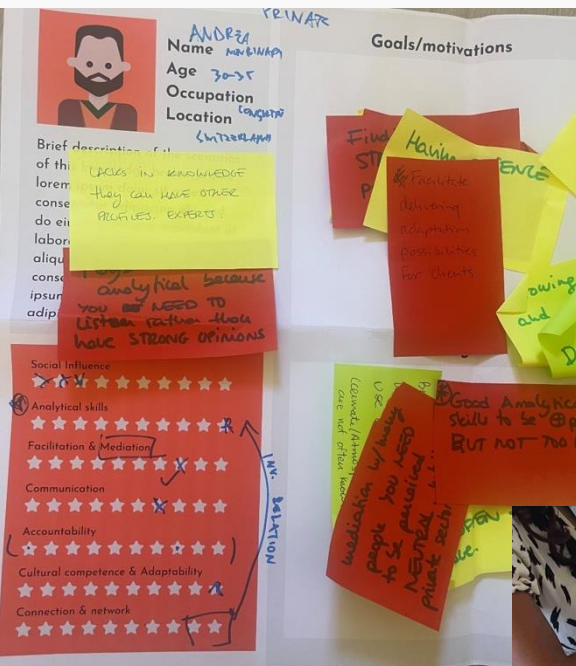 PRIVATE
ANDREA
Name NONBINARY
Age 30-35
Occupation
Location
SWITZERLAND
Goals/motivations
Brief description of the
of this
lorem
conse
do ei
labor
aliqu
conse
ipsum
adip
LACKS IN KNOWLEDGE
they can HAVE OTHER
PROFILES. EXPERTS.
analytical because
YOU NEED TO
Listen rather than
have STRONG OPINIONS
Social Influence
Analytical skills
Facilitation & Mediation
Communication
Accountability
Cultural competence & Adaptability
Connection & network
INV. RELATION
Find
ST
P
Having
ENCE
Facilitate
delivering
adaptation
possibilities
for clients
owing
and
D
are not often
mediation w/ many
people YOU NEED
to be perceived
NEUTRAL
private sect
Good Analytic
skills to be
BUT NOT TOO
OPEN